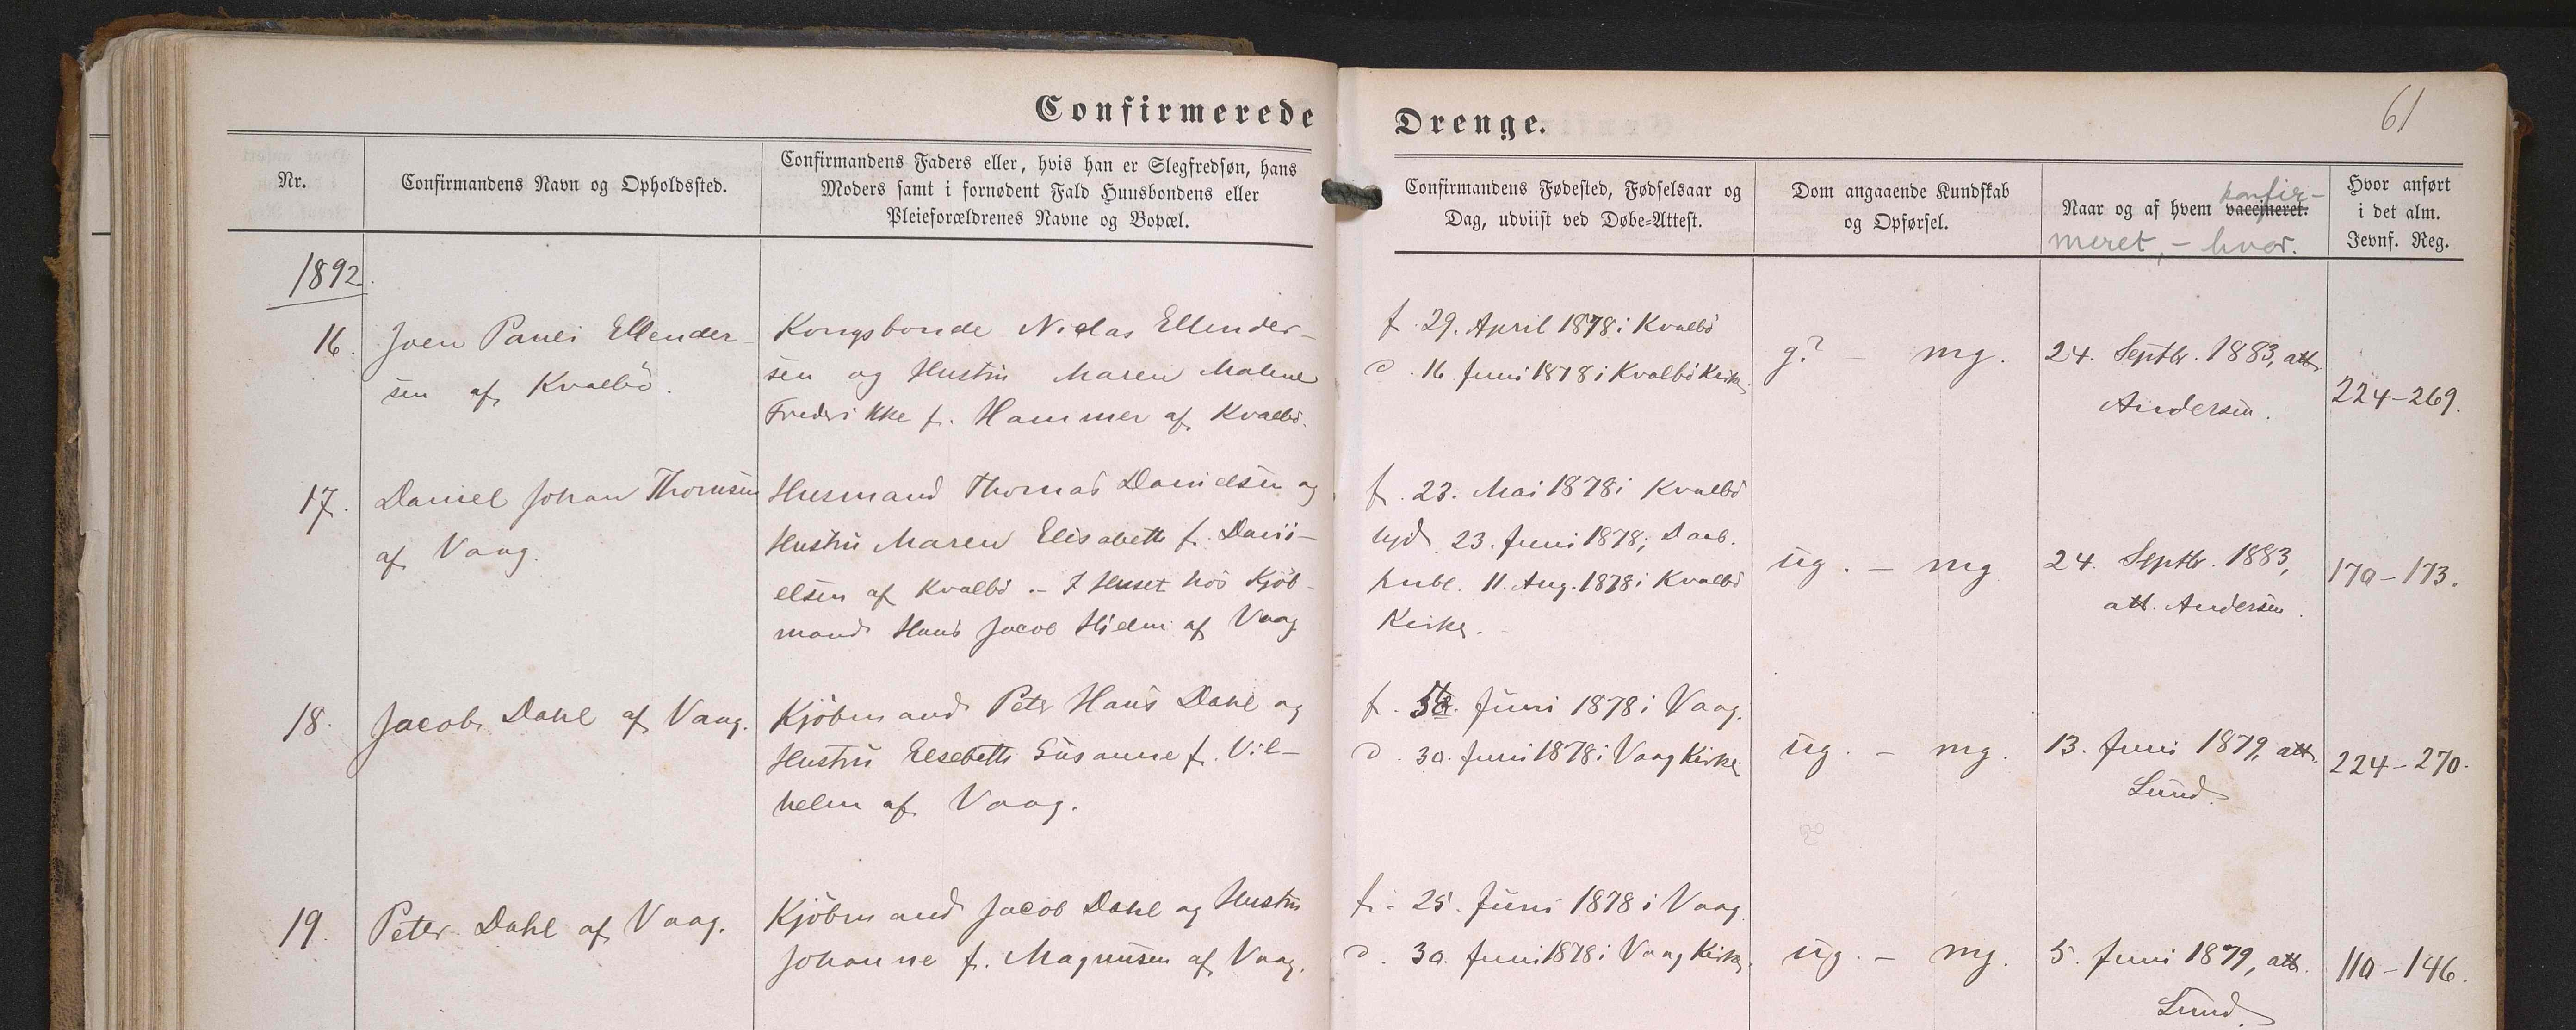 Confirmerede Drenge.
61
Nr.
Confirmandens Navn og Opholdssted.
Confirmandens Faders eller, hvis han er Slegfredsøn, hans
Moders samt i fornødent Fald Huusbondens eller
Pleieforældrenes Navne og Bopæl.
Confirmandens Fødested, Fødselsaar og
Dag, udviist ved Døbe-Attest.
Dom angaaende Kundskab
og Opførsel.
Naar og af hvem vaccineret. konfir-
meret, - hvor.
Hvor anført
i det alm.
Jevnf. Reg.
1892.
16.
Joen Pauli Ellender-
sen af Kvalbö.
Kongsbonde Niclas Ellender-
sen og Hustru Maren Malene
Frederikke f. Hammer af Kvalbö.
f. 29. April 1878 i Kvalbö
d. 16 Juni 1878 i Kvalbö Kirke.
g? - mg.
24. Septbr. 1883, att.
Andersen.
224-269.
17.
Daniel Johan Thomsen
af Vaag.
Husmand Thomas Danielsen og
Hustru Maren Elisabeth f. Dani-
elsen af Kvalbö. - I Huset hos Kjöb-
mand Hans Jacob Hjelm af Vaag
f. 23. Mai 1878 i Kvalbö
hjd. 23. Juni 1878; Daab.
publ. 11. Aug. 1878 i Kvalbö
Kirke.
ug. - mg
24. Septbr. 1883,
att. Andersen.
170-173.
18.
Jacob Dahl af Vaag.
Kjöbmand Peter Hans Dahl og
Hustru Elsebeth Susanne f. Vil-
helm af Vaag.
f. Juni 1878 i Vaag.
d. 30. Juni 1878 i Vaag Kirke
ug. - mg.
13. Juni 1879, att.
Lund.
224-270.
19.
Peter Dahl af Vaag.
Kjöbmand Jacob Dahl og Hustru
Johanne f. Magnusen af Vaag.
f. 25. Juni 1878 i Vaag
d. 30. Juni 1878 i Vaag Kirke.
ug. - mg.
5. Juni 1879, att.
Lund.
110-146.